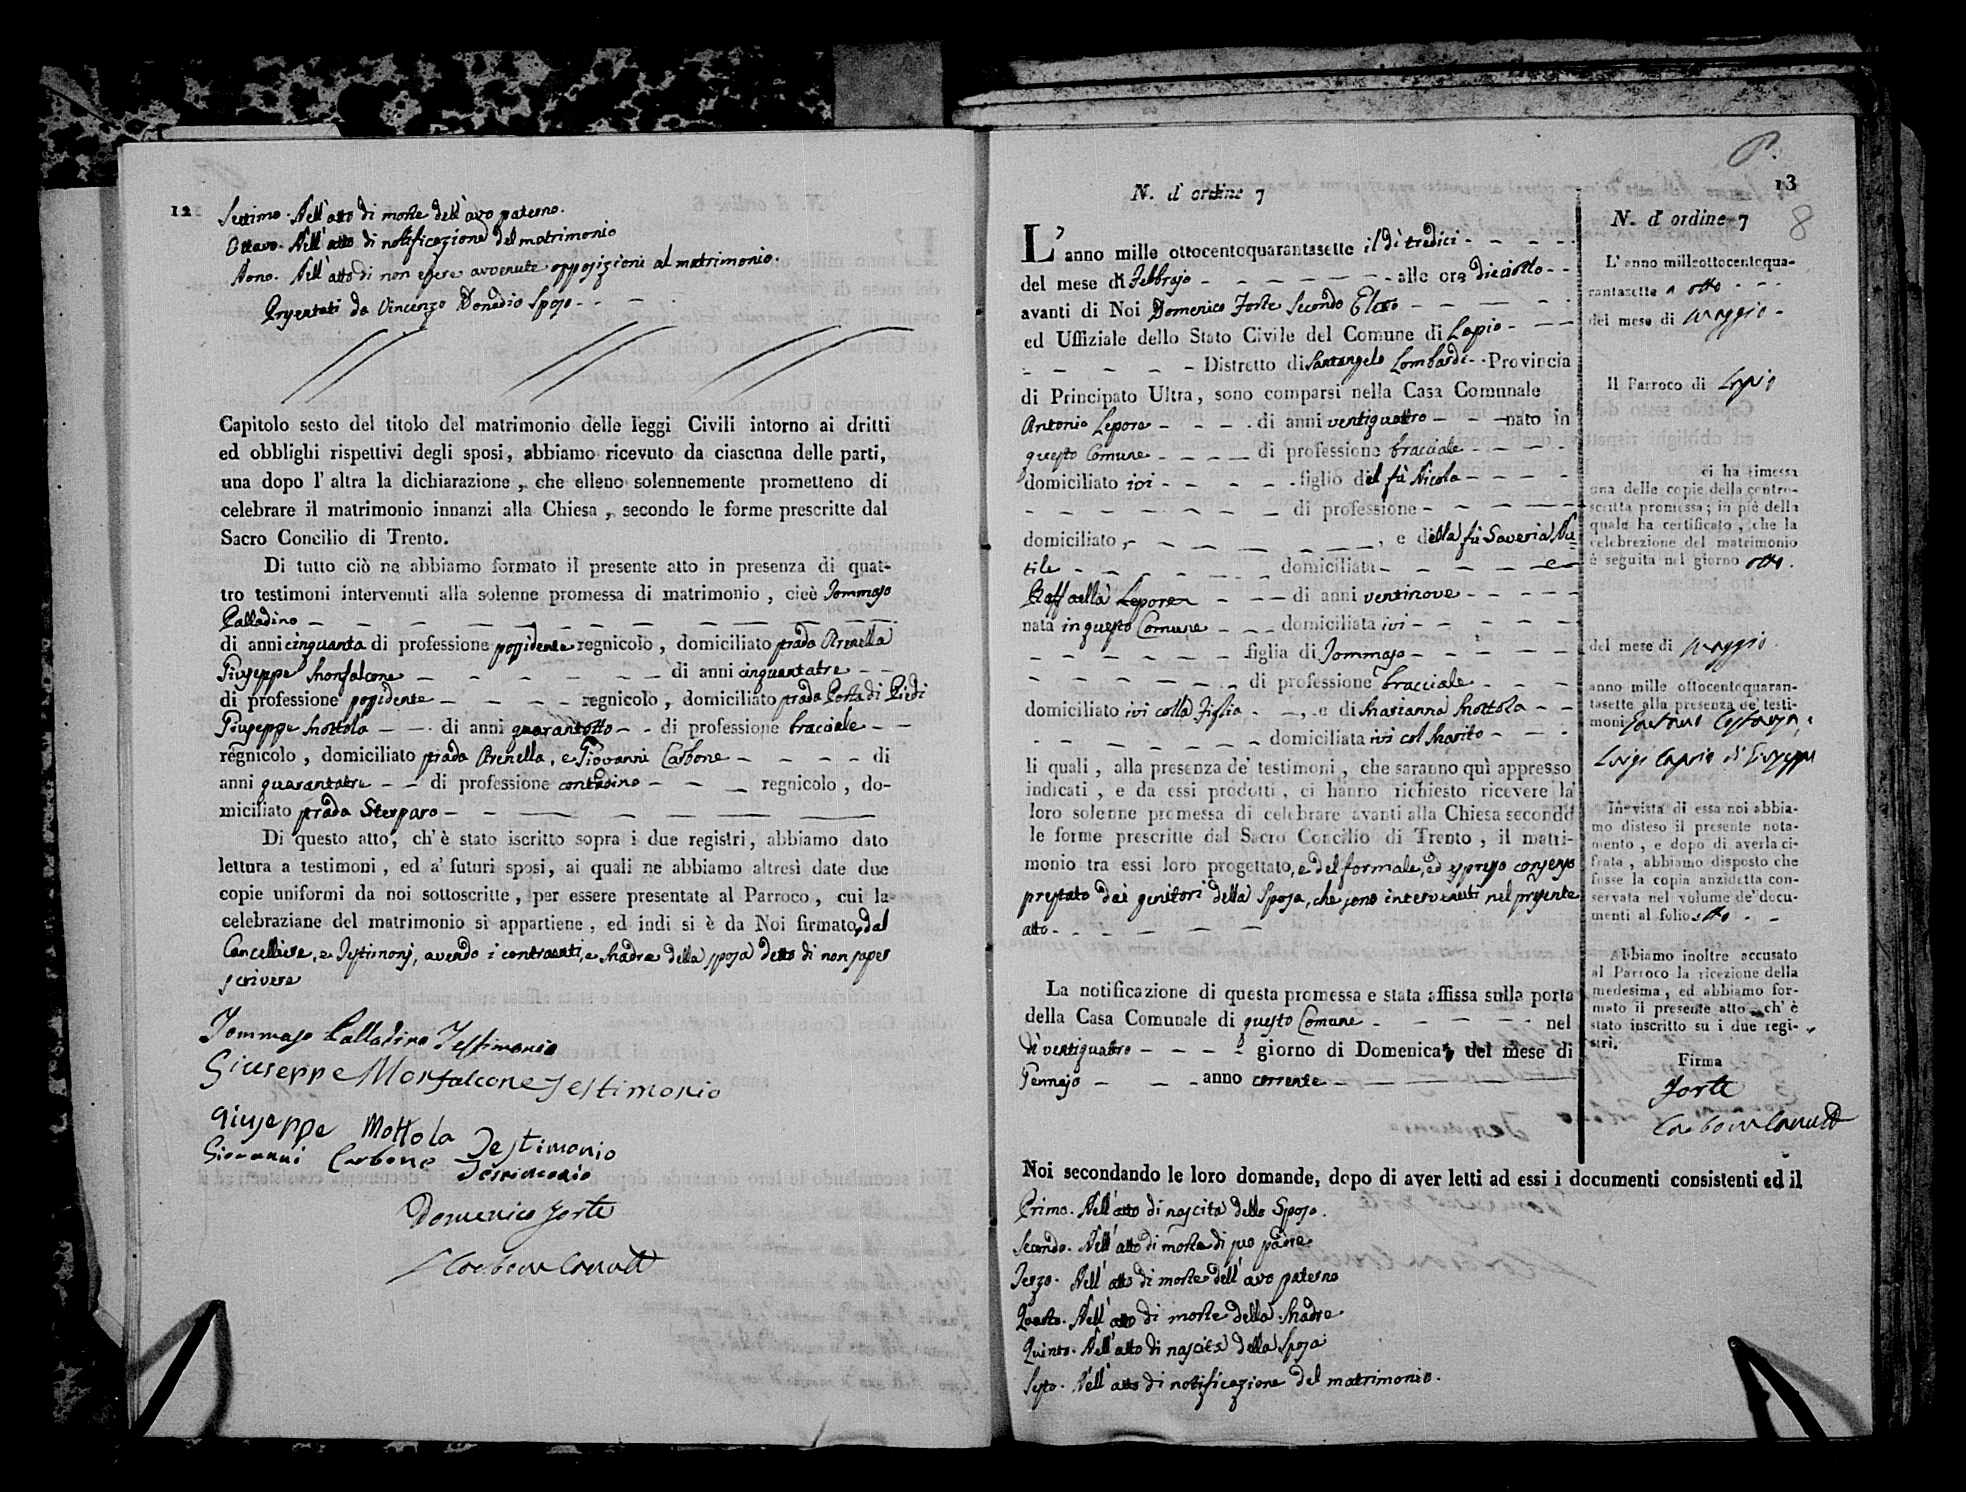 12
Settimo. Nell'atto di morte dell'avo paterno.
Ottavo. Nell'atto di notificazione del matrimonio
Nono. Nell'atto di non essere avvenute opposizioni al matrimonio.
Presentati da Vincenzo Donadio Sposo
Capitolo sesto del titolo del matrimonio delle leggi Civili intorno ai dritti
ed obblighi rispettivi degli sposi, abbiamo ricevuto da ciascuna delle parti,
una dopo l'altra la dichiarazione, che elleno solennemente promettono di
celebrare il matrimonio innanzi alla Chiesa, secondo le forme prescritte dal
Sacro Concilio di Trento.
Di tutto ciò ne abbiamo formato il presente atto in presenza di quat-
tro testimoni intervenuti alla solenne promessa di matrimonio, cioè Tommaso
Palladino
di anni cinquanta di professione possidente regnicolo, domiciliato strada Arenella
Giuseppe Monfalcone di anni cinquantatre
di professione possidente regnicolo, domiciliato strada Porta di Piedi
Giuseppe Mottola di anni quarantotto di professione bracciale
regnicolo, domiciliato strada Arenella, e Giovanni Carbone di
anni quarantatre di professione contadino regnicolo, do-
miciliato strada Sterparo
Di questo atto, ch'è stato iscritto sopra i due registri, abbiamo dato
lettura a testimoni, ed a' futuri sposi, ai quali ne abbiamo altresì date due
copie uniformi da noi sottoscritte, per essere presentate al Parroco, cui la
celebraziane del matrimonio si appartiene, ed indi si è da Noi firmato, dal
Cancelliere, e Testimonj, avendo i contraenti, e Madre della sposa detto di non saper
scrivere
Tommaso Palladino Testimonio
Giuseppe Monfalcone Testimonio
Giuseppe Mottola Testimonio
Giovanni Carbone Testimonio
Domenico Forte
N. d'ordine 7
13
8
L'anno mille ottocentoquarantasette il dì tredici
del mese di Febbrajo alle ore dieciotto
avanti di Noi Domenico Forte Secondo Eletto
ed Uffiziale dello Stato Civile del Comune di Lapio
Distretto di Santangelo Lombardi Provincia
di Principato Ultra, sono comparsi nella Casa Comunale
Antonio Lepore di anni ventiquattro nato in
questo Comune di professione bracciale
domiciliato ivi figlio del fù Nicola
di professione
domiciliato, e della fù Saveria Nu
tile domiciliata e
Raffaella Lepore di anni ventinove
nata in questo Comune domiciliata ivi
figlia di Tommaso
di professione bracciale
domiciliato ivi colla Figlia, e di Marianna Mottola
domiciliata ivi col Marito
li quali, alla presenza de' testimoni, che saranno quì appresso
indicati, e da essi prodotti, ci hanno richiesto ricevere la
loro solenne promessa di celebrare avanti alla Chiesa secondo
le forme prescritte dal Sacro Concilio di Trento, il matri-
monio tra essi loro progettato, e del formale, ed espresso consenso
prestato dai genitori della Sposa, che sono intervenuti nel presente
atto
La notificazione di questa promessa e stata affissa sulla porta
della Casa Comunale di questo Comune nel
dì ventiquattro giorno di Domenica del mese di
Gennajo anno corrente
N. d'ordine 7
L'anno milleottocentoqua-
rantasette a otto
del mese di Maggio
Il Parroco di Lapio
ci ha rimessa
una delle copie della contro-
scritta promessa; in piè della
quale ha certificato, che la
celebrezione del matrimonio
è seguita nel giorno otto
del mese di Maggio
anno mille ottocentoquaran-
tasette alla presenza de' testi-
moni Gaetano
Luigi Caprio di Giuseppe
In vista di essa noi abbia-
mo disteso il presente nota-
mento, e dopo di averla ci-
frata, abbiamo disposto che
fosse la copia anzidetta con-
servata nel volume de' docu-
menti al folio otto
Abbiamo inoltre accusato
al Parroco la ricezione della
medesima, ed abbiamo for-
mato il presente atto ch'è
stato inscritto su i due regi-
stri.
Firma
Forte
Noi secondando le loro domande, dopo di aver letti ad essi i documenti consistenti ed il
Primo. Nell'atto di nascita dello Sposo.
Secondo. Nell'atto di morte di suo padre
Terzo. Nell'atto di morte dell'avo paterno
Quarto. Nell'atto di morte della Madre
Quinto. Nell'atto di nascita della Sposa
Sesto. Nell'atto di notificazione del matrimonio.